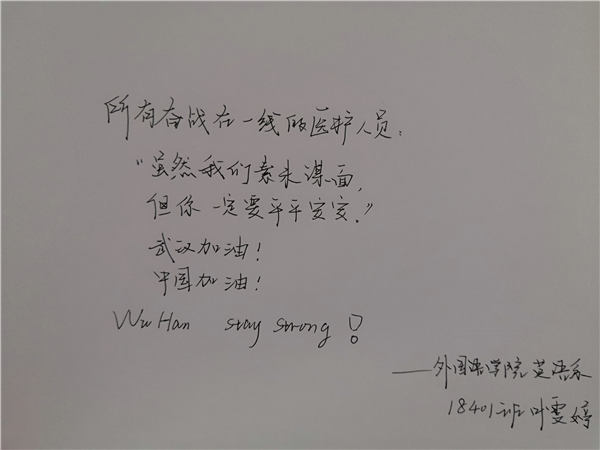 所有奋战在一线的医护人员：
“虽然我们素未谋面，
但你一定要平平安安。”
武汉加油！
中国加油！
WuHan stay strong！
——外国语学院英语系
18401班叶雯婷